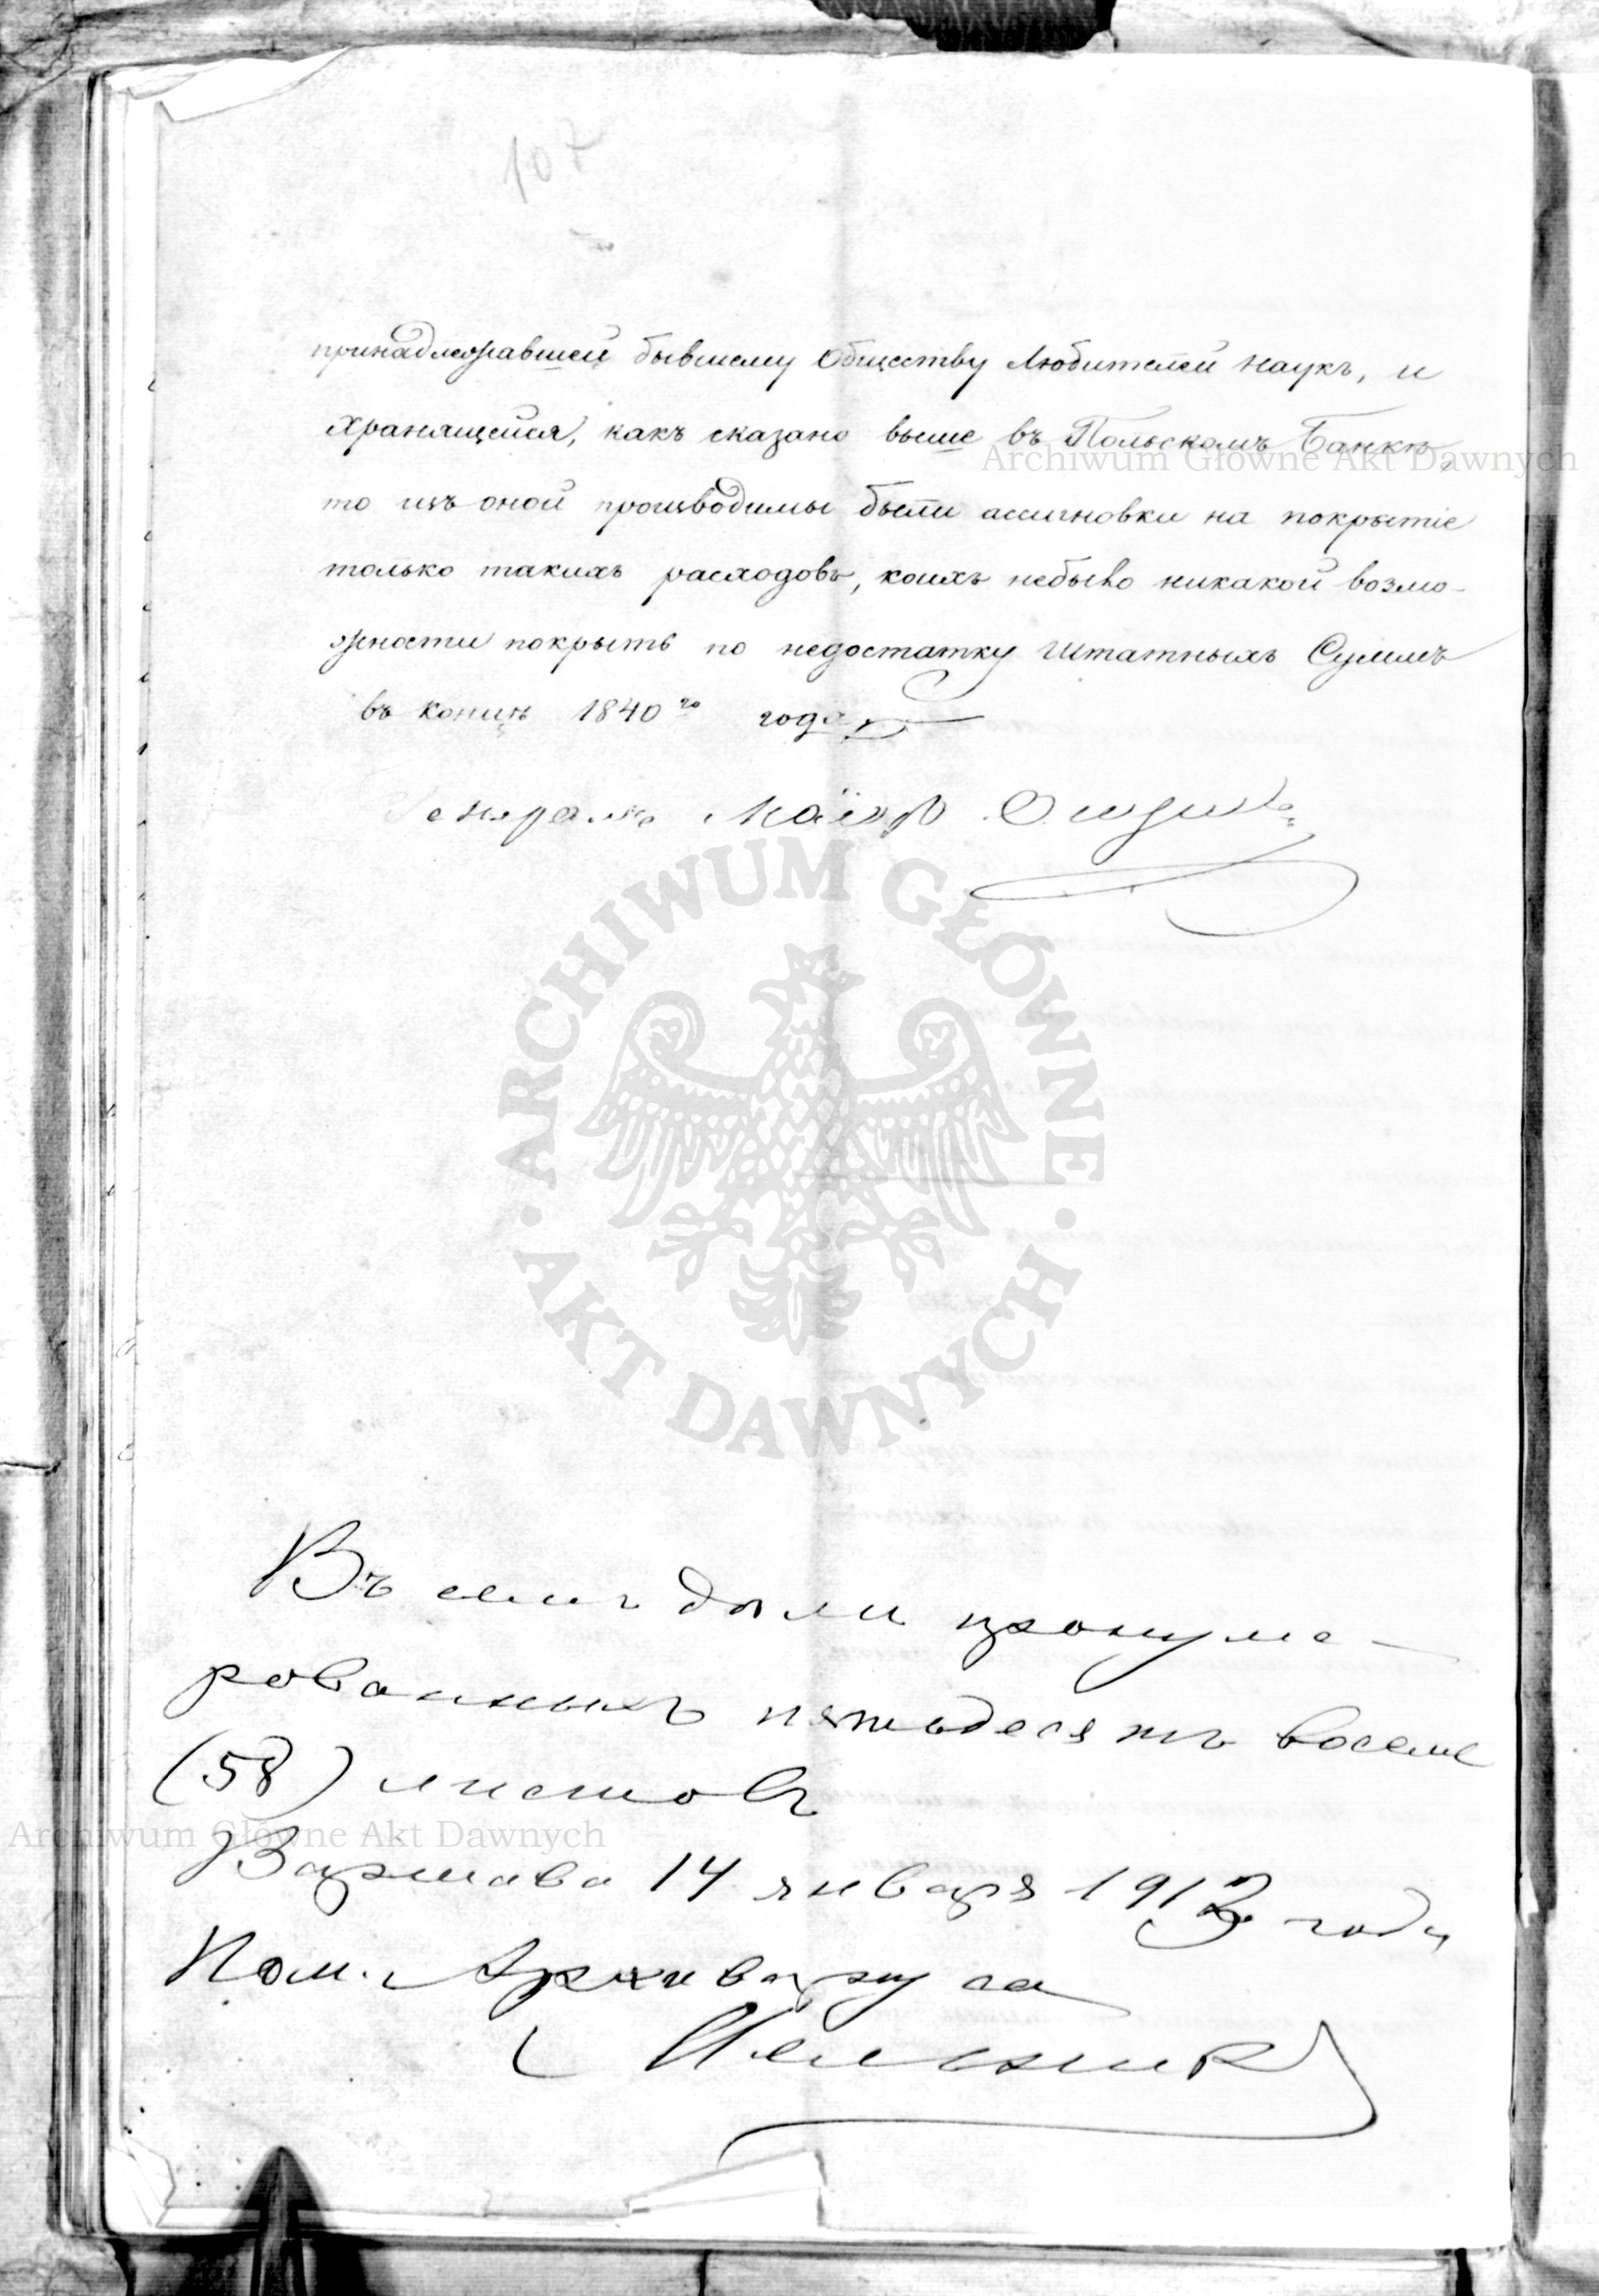 107
принадлежавшей бывшему Обществу Любителей Наукъ, и
хранящейся, какъ сказано выше въ Польскомъ Банкѣ,
то изъ оной производимы были ассигновки на покрытіе
только такихъ расходовъ, коихъ небыло никакой возмо-
жности покрыть по недостатку штатныхъ Суммъ
въ концѣ 1840го года
Генералъ Маіоръ
Въ семъ дѣли пронуме-
рованныхъ пятьдесятъ восемь
(58) листовъ
Варшава 14 января 1913 года
Пом. Архиваріуса
Archiwum Główne Akt Dawnych
ARCHIWUM GŁÓWNE · AKT DAWNYCH ·
Archiwum Główne Akt Dawnych